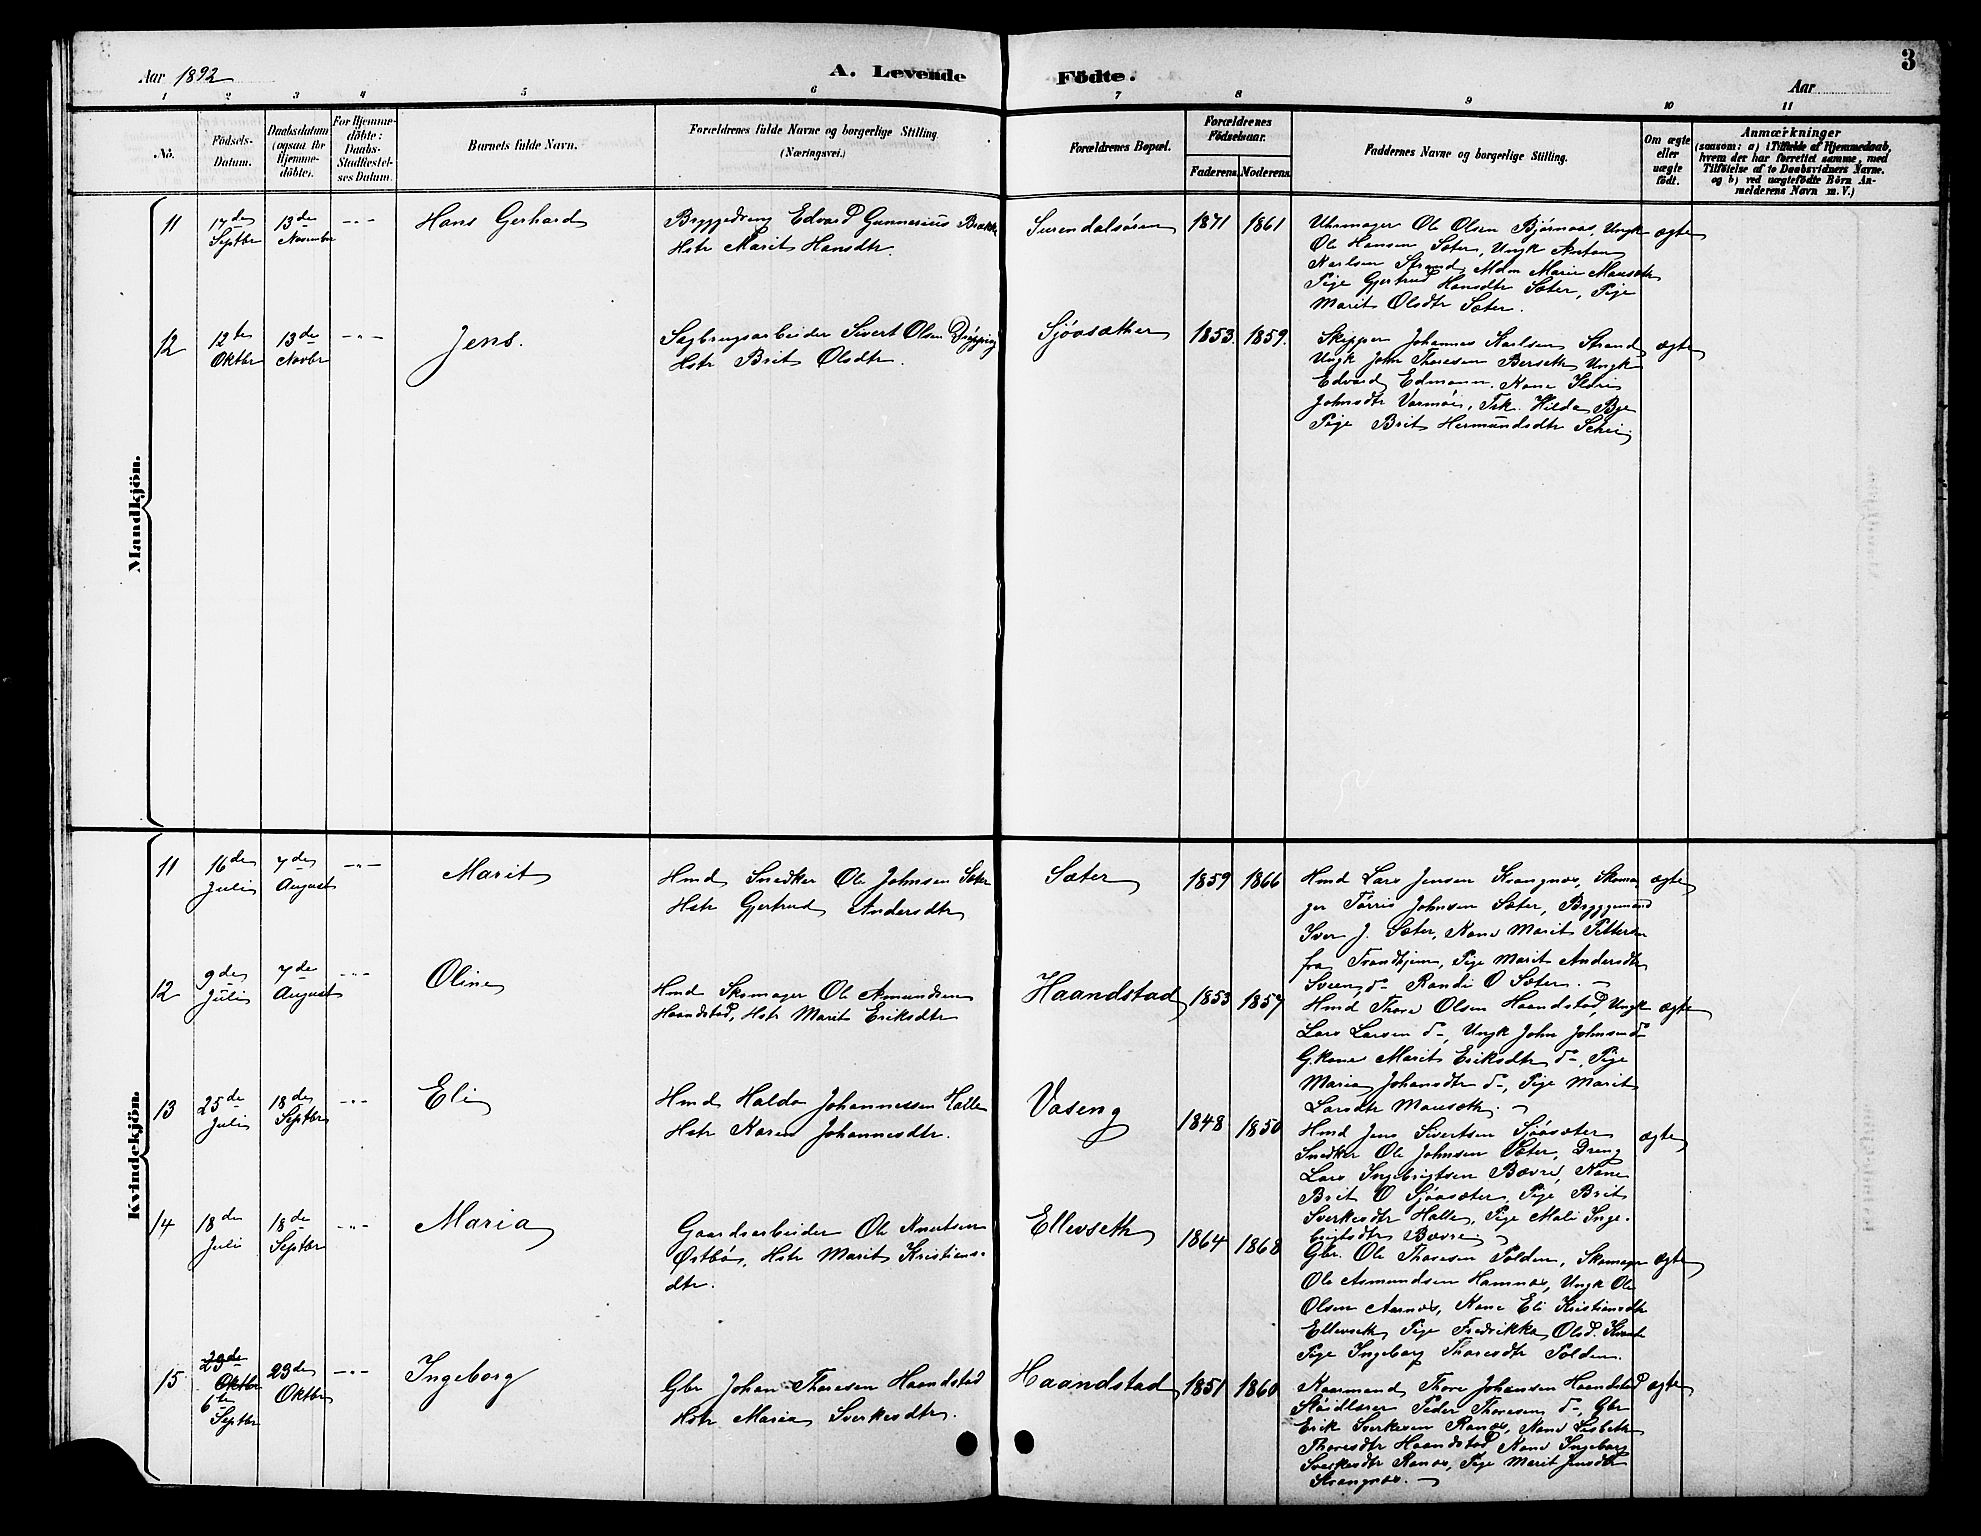 3
Aar 1892
A. Levende Födte.
Aar
1 2 3 4 5 6 7 8 9 10 11
No.
Födsels-
Datum.
Daabsdatum
(ogsaa for
Hjemme-
döbte).
For Hjemme-
döbte:
Daabs-
Stadfestel-
ses Datum.
Barnets fulde Navn.
Forældrenes fulde Navne og borgerlige Stilling
(Næringsvei.)
Forældrenes Bopæl.
Forældrenes
Födselsaar.
Faderens. Moderens.
Faddernes Navne og borgerlige Stilling.
Om ægte
eller
uægte
födt.
Anmærkninger
(saasom: a) i Tilfælde af Hjemmedaab,
hvem der har forrettet samme, med
Tilföielse af to Daabsvidners Navne.
og b) ved uægtefödte Börn An-
melderens Navn m. V.)
Mandkjön.
11
17de
Septbr
13de
November
-"-
Hans Gerhard
Byggedreng Edvard Gunnerius Brakke
Hstr Marit Hansdtr.
Surendalsøren
1871 1861
Uhrmager Ole Olsen Bjørnaas, Ungk
Ole Hansen Sæter, Ungk Anton
Karlsen Strand, Mdm Marie Mauseth
Pige Gjertrud Hansdtr Sæter, Pige
Marit Olsdtr Sæter.
ægte
12
12te
Oktbr
13de
Novbr
-"-
Jens.
Sagbrugsarbeider Sivert Olsen Drøpping
Hstr Brit Olsdtr.
Sjøasæther
1853. 1859.
Skipper Johannes Karlsen Strand
Ungk John Thoresen Berseth Ungk
Edvard Edmann. Kone Ildri
Johnsdtr Varmøi, Frk. Hilda Bye
Pige Brit Hermundsdtr Schei
ægte
Kvindekjön.
11
16de
Juli
7de
August
-"-
Marit
Hmd Snedker Ole Johnsen Sæter
Hstr Gjertrud Andersdtr
Sæter
1859 1866
Hmd Lars Jensen Krangnæs, Skoma
ger Tørris Johnsen Sæter, Byggemand
Iver J. Sæter, Kone Marit Pettersen
fra Trondhjem, Pige Marit Andersdtr
Sveen, Randi O Sæter. -
ægte
12
9de
Juli
7de
August
-"-
Oline
Hmd Skomager Ole Asmundsen
Haandstad, Hstr Marit Eriksdtr
Haandstad
1853 1857
Hmd Thore Olsen Haandstad, Ungk
Lars Larsen do, Ungk John Johnsen do
G.kone Marit Eriksdtr do, Pige
Maria Johansdtr do, Pige Marit
Larsdtr Mauseth. -
ægte
13
25de
Juli
18de
Septbr
-"-
Eli
Hmd Haldo Johannessen Halle
Hstr Karen Johannesdtr.
Vaseng
1848 1850
Hmd Jens Sivertsen Sjøasæter
Snedker Ole Johnsen Sæter, Dreng
Lars Ingebrigtsen Bævre, Kone
Brit O Sjøasæter, Pige Brit
Sverkesdtr Halle, Pige Mali Inge-
brigtsdtr Bævre -
ægte
14
18de
Juli
18de
Septbr
-"-
Maria
Gaardsarbeider Ole Knutsen
Østbø, Hstr Marit Kristians-
dtr.
Ellevseth
1864 1868
Gbr. Ole Thoresen Polden, Skomager
Ole Asmundsen Hamnæs, Ungk Ole
Olsen Aarnæs, Kone Eli Kristiansdtr
Ellevseth, Pige Fredrikka Olsd.
Pige Ingeborg Thoresdtr Polden.
ægte
15
23de
Oktbr
6te
Septbr
23de
Oktbr
-"-
Ingeborg
Gbr Johan Thoresen Haandstad
Hstr Maria Sverkesdtr.
Haandstad
1851 1860
Kaarmand Thore Johansen Haandstad
Peder Thoresen do, Gbr
Erik Sverkesen Ranæs, Kone Lisbeth
Thoresdtr Haandstad Kone Ingeborg
Sverkesdtr Ranæs, Pige Marit Jensdtr
Krangnæs. -
ægte